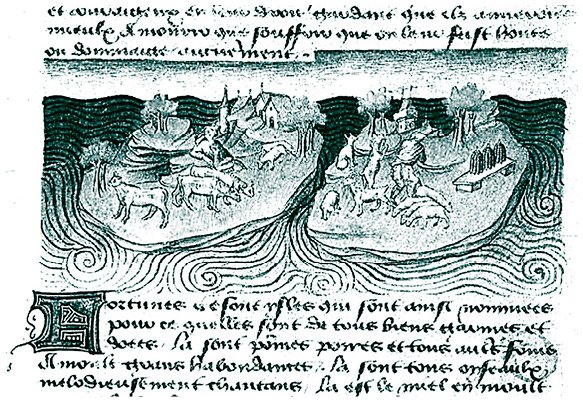 et couraigeux en leur droit gardant que ilz
mieulx a mourir que souffrir que on leur feist honte
ou dommaige aucunement .
Fortunes ce sont ysles qui sont ainsi nommees
pour ce quelles sont de tous biens garnies et
doees . la sont pomes poires et tous
A moult grans habondances . la sont tous oyseaulx
melodieusement chantans . la est le miel en moult